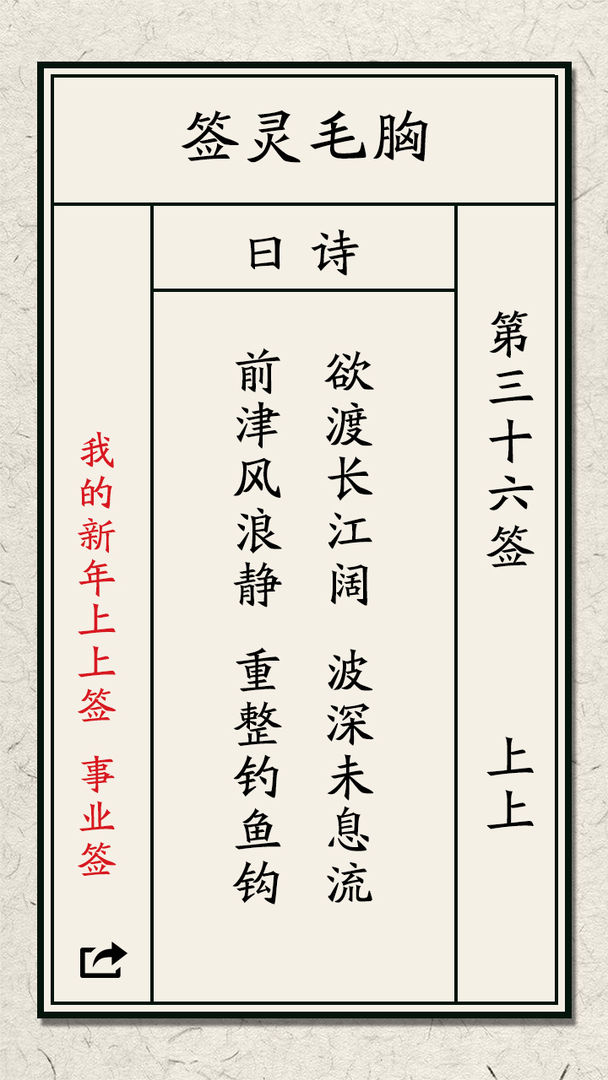 胸毛灵签
第三十六签 上上
诗曰
欲渡长江阔 波深未息流
前津风浪静 重整钓鱼钩
我的新年上上签 事业签